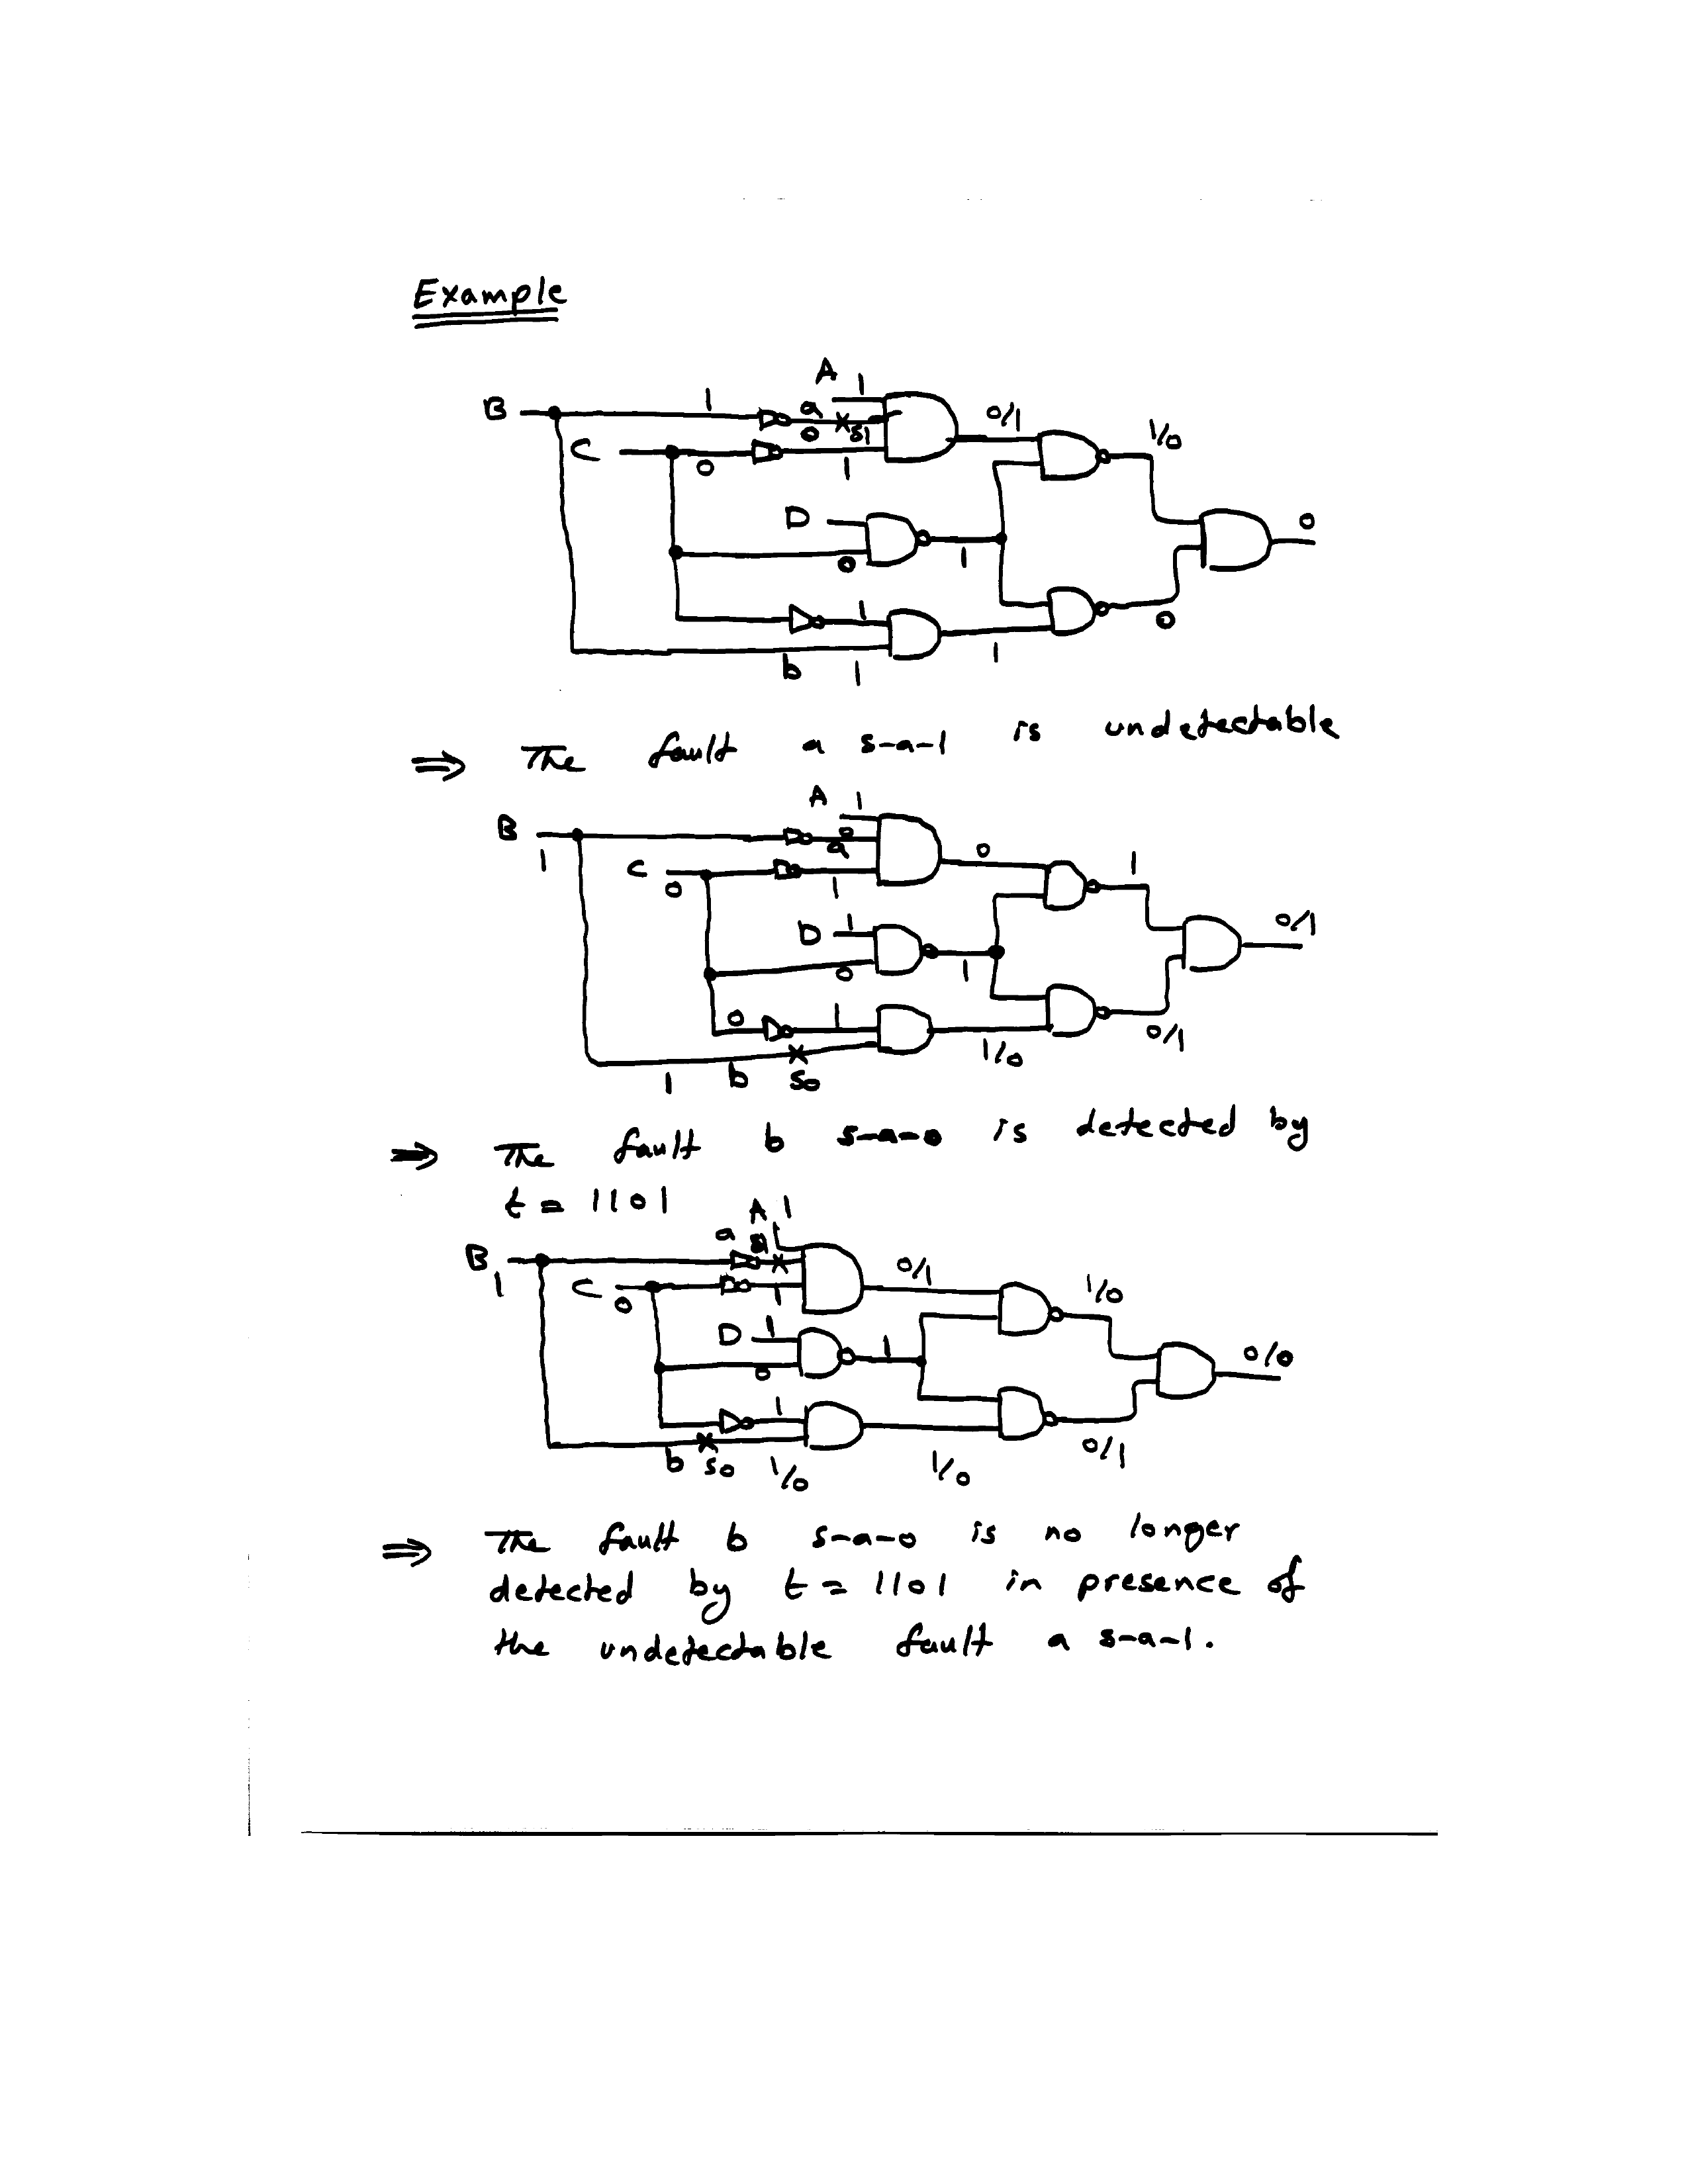 Example
A 1
B 1 a 0/1 1/0
0 s1
C 0 1
D 0
0 1
1 0
b 1 1
⇒ The fault a s-a-1 is undetectable
A 1
B 0 0 1
1 a
C 0 1 0/1
D 1
0 1
0 1 0/1
1 b s0 1/0
⇒ The fault b s-a-0 is detected by
t = 1101
A 1
B 1 a s1 0/1 1/0
C 0 1
D 1 1 0/0
0
1
b s0 1/0 1/0 0/1
⇒ The fault b s-a-0 is no longer
detected by t = 1101 in presence of
the undetectable fault a s-a-1.